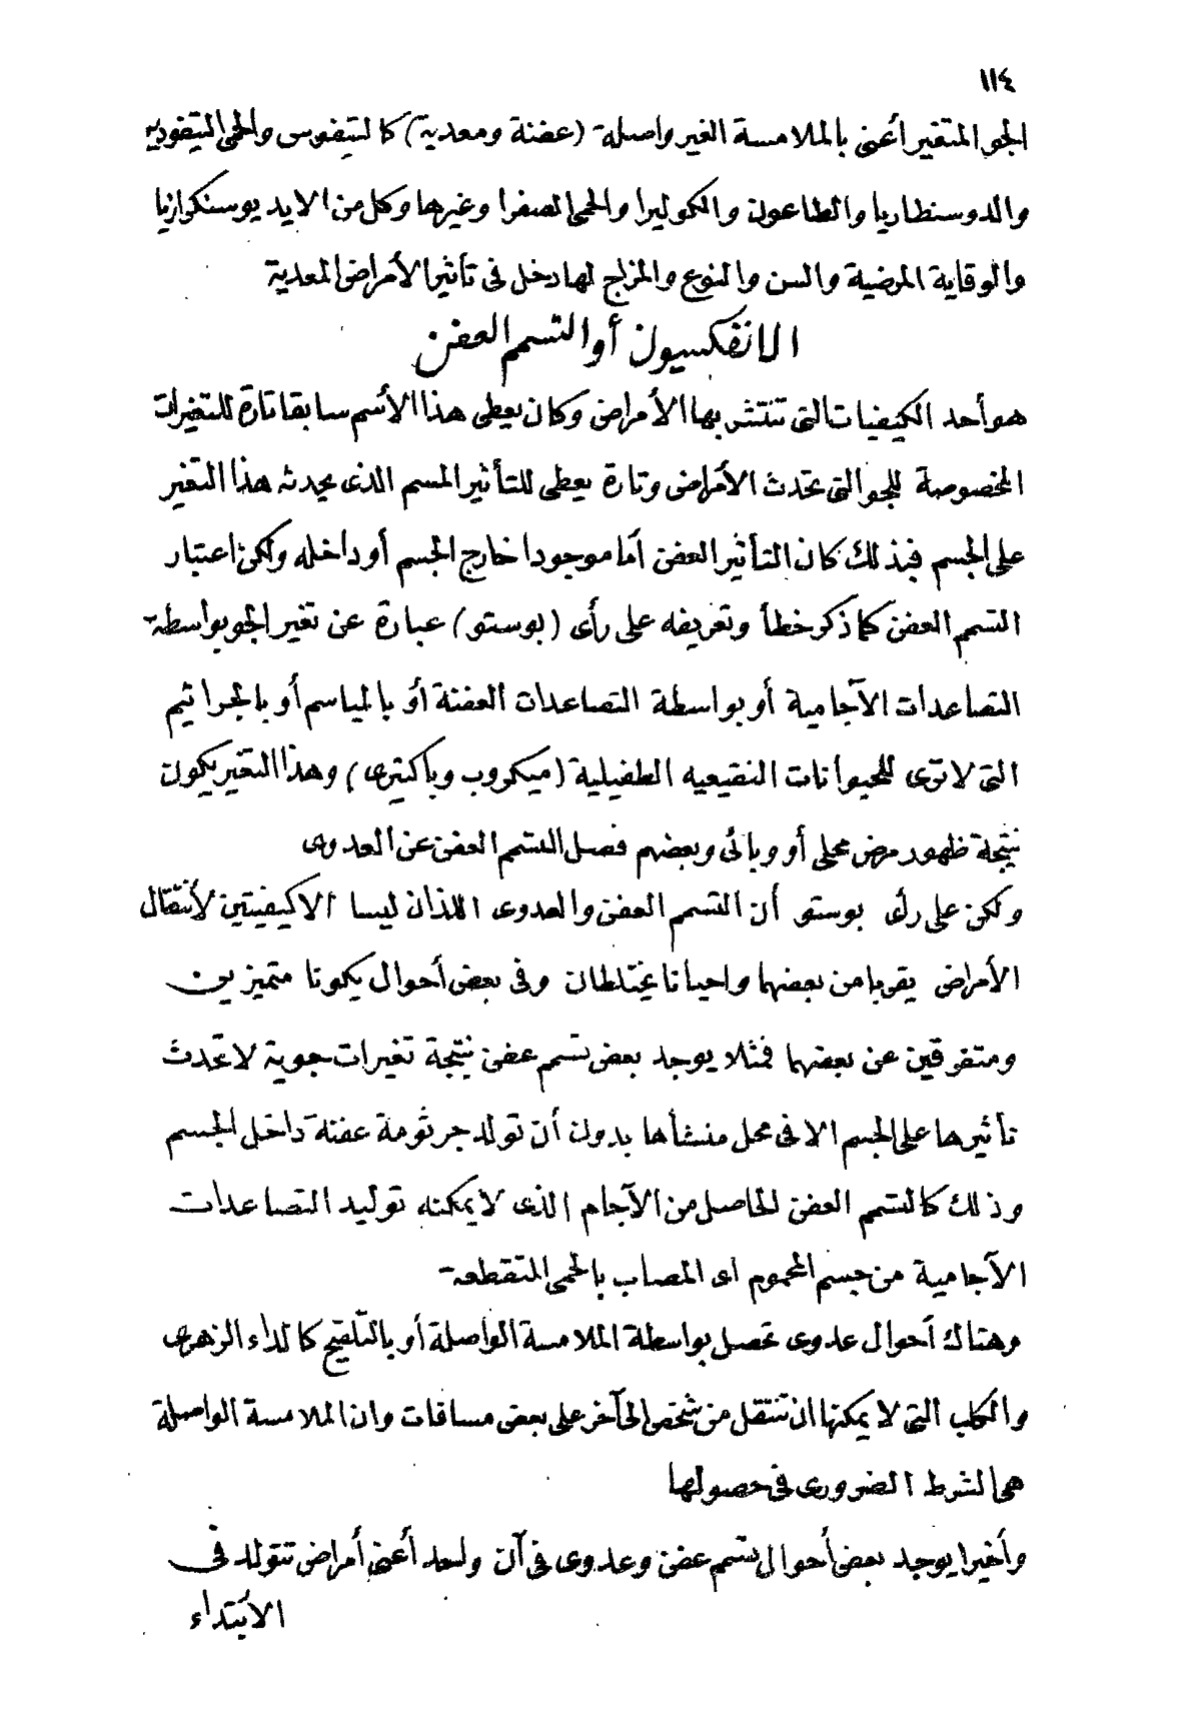 ١١٤
الجو المتغير أعنى بالملامسة الغير واصلة (عفنة ومعدية) كالتيفوس والحمى التيفودية
والدوسنطاريا والطاعون والكوليرا والحمى الصفرا وغيرها وكل من الايديوسنكرازيا
والوقاية المرضية والسن والنوع والمزاج لها دخل فى تأثير الأمراض المعدية
الانفكسيون أو التسمم العفن
هو أحد الكيفيات التى تنتشر بها الأمراض وكان يعطى هذا الأسم سابقا تارة للتغيرات
المخصوصة للجو التى تحدث الأمراض وتارة يعطى للتأثير المسم الذى يحدثه هذا التغير
على الجسم فبذلك كان التأثير العفن أما موجودا خارج الجسم أو داخله ولكن اعتبار
التسمم العفن كما ذكر خطأ وتعريفه على رأى (بوستو) عبارة عن تغير الجو بواسطة
التصاعدات الآجامية أو بواسطة التصاعدات العفنة أو بالمياسم أو بالجراثيم
التى لا ترى للحيوانات النقيعيه الطفيلية (ميكروب وباكتيرى) وهذا التغير يكون
نتيجة ظهور مرض محلى أو وبائى وبعضهم فصل التسمم العفن عن العدوى
ولكن على رأى بوستو أن التسمم العفن والعدوى اللذان ليسا الا كيفيتين لأنتقال
الأمراض يقربا من بعضهما واحيانا يختلطان وفى بعض أحوال يكونا متميزين
ومتفرقين عن بعضهما فمثلا يوجد بعض تسمم عفن نتيجة تغيرات جوية لا تحدث
تأثيرها على الجسم الا فى محل منشأها بدون أن تولد جرثومة عفنة داخل الجسم
وذلك كالتسمم العفن الحاصل من الآجام الذى لا يمكنه توليد التصاعدات
الآجامية من جسم المحموم اى المصاب بالحمى المتقطعة
وهناك أحوال عدوى تحصل بواسطة الملامسة الواصلة أو بالتلقيح كالداء الزهرى
والكلب التى لا يمكنها ان تنتقل من شخص الى آخر على بعض مسافات وان الملامسة الواصلة
هى الشرط الضرورى فى حصولها
وأخيرا يوجد بعض أحوال تسمم عفن وعدوى فى آن واحد أعنى أمراض تتولد فى
الأبتداء